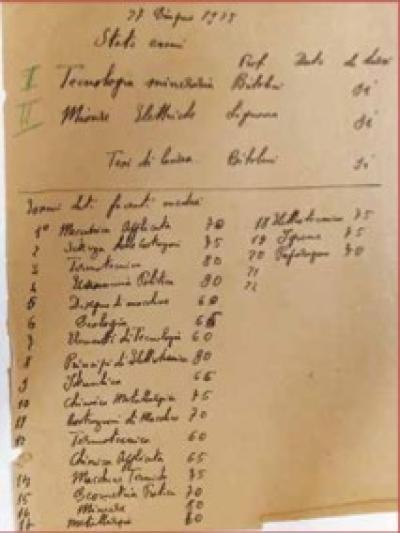 27 Giugno 1975
Stato esami
Prof Data di laurea
I Tecnologia mineraria Bitolini si
II Misure Elettriche Signora si
Tesi di laurea Bitolini si
Esami dati facenti media
1° Meccanica Applicata 70
2 Scienza delle Costruzioni 75
3 Termotecnica 80
4 Economia Politica 90
5 Disegno di macchine 60
6 Geologia 65
7 Elementi di Tecnologia 60
8 Principi di Elettrotecnica 80
9 Idraulica 65
10 Chimica Metallurgica 75
11 Costruzioni di Macchine 70
12 Termotecnica 60
Chimica Applicata 65
14 Macchine Termiche 75
15 Geometria Pratica 70
16 Miniere 80
17 Metallurgia 60
18 Elettrotecnica 75
19 Igiene 75
20 70
21
22